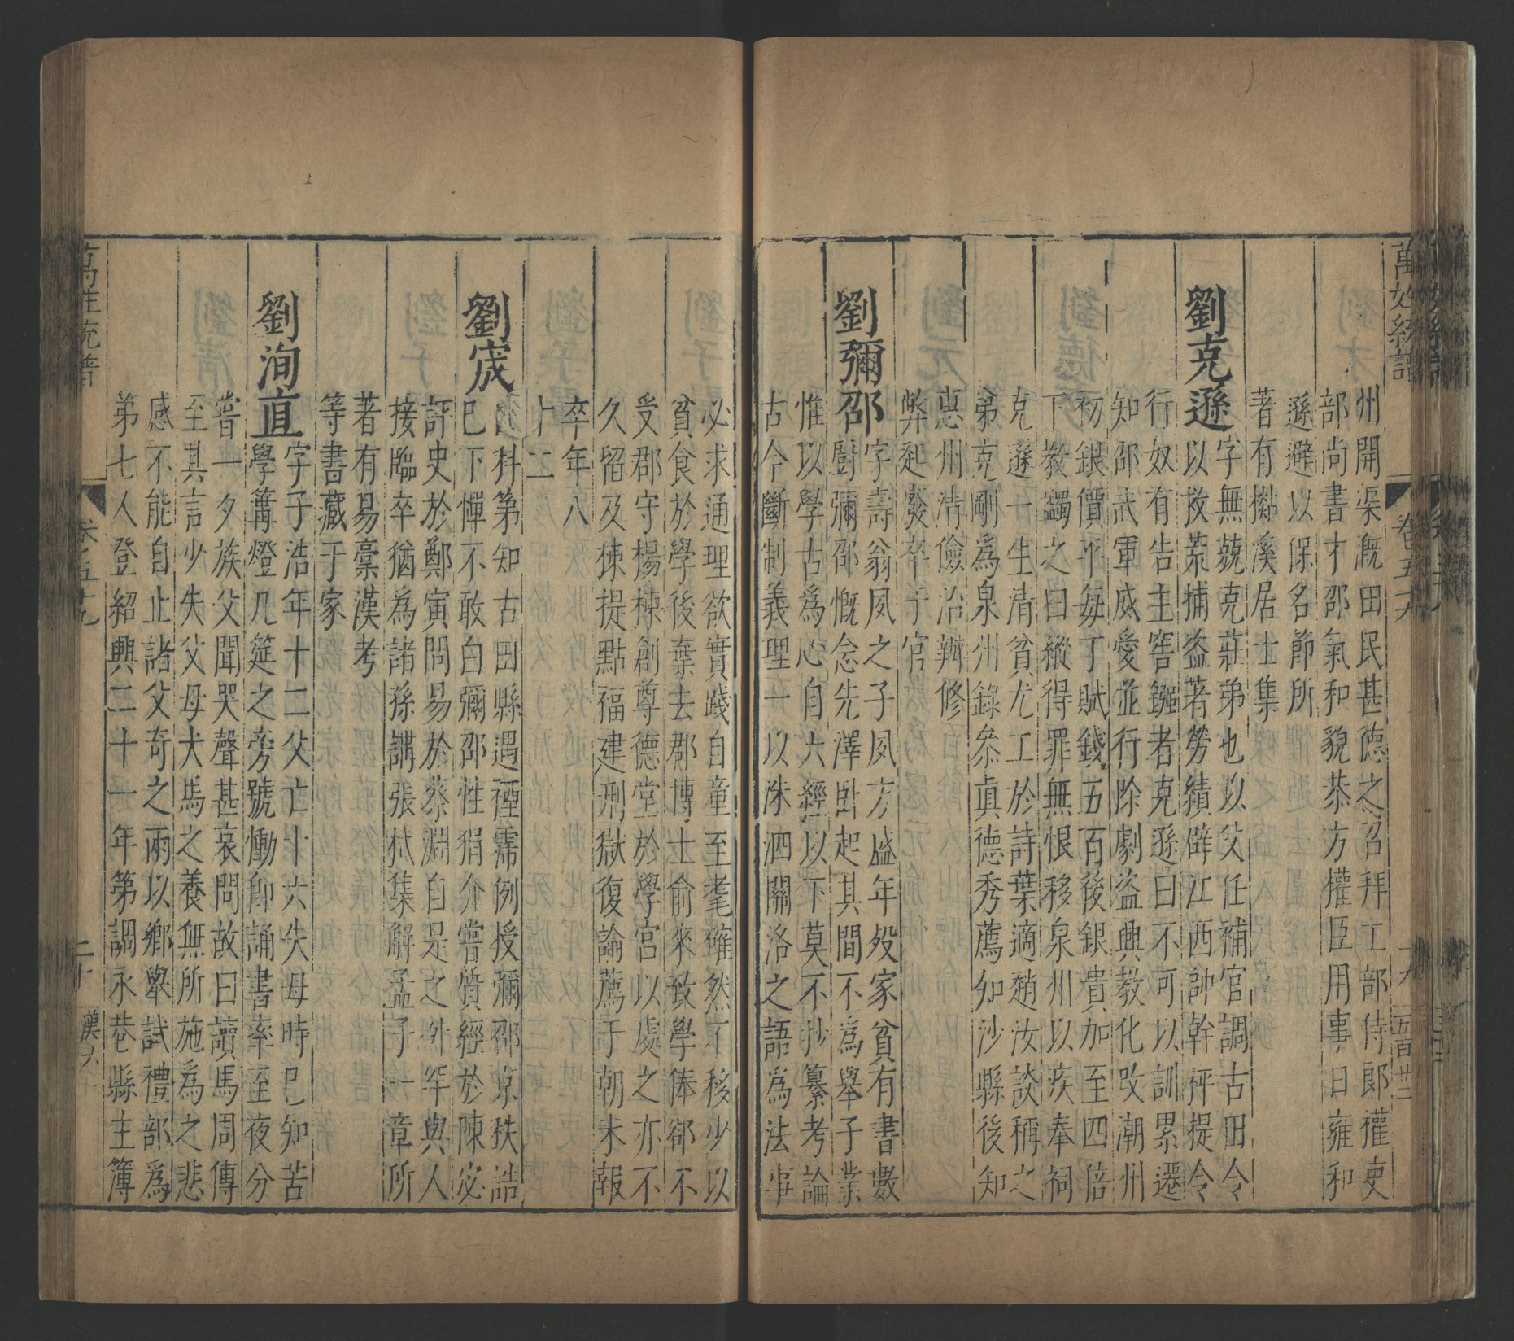 萬姓統譜
卷五十九
州開渠溉田民甚德之召拜工部侍郎權吏
部尚書才邵氣和貌恭方權臣用事日雍和
遜避以保名節所
著有𣏌溪居士集
劉克遜
字無競克莊弟也以父任補官調古田令
以救荒捕盜著勞績辟江西帥幹秤提令
行奴有告主窖鏹者克遜曰不可以訓累遷
知邵武軍威愛並行除劇盜興教化改潮州
初銀價平每丁賦錢五百後銀貴加至四倍
下教蠲之曰緩得罪無恨移泉州以疾奉祠
克遜一生清貧尤工於詩葉適趙汝談稱之
弟克剛為泉州錄參眞德秀薦知沙縣後知
惠州清儉治辦修
弊起廢卒于官
劉彌邵
字壽翁夙之子夙方盛年歿家貧有書數
廚彌邵慨念先澤臥起其間不為舉子業
惟以學古為心自六經以下莫不抄纂考論
古今斷制義理一以洙泗關洛之語為法事
必求通理欲實踐自童至耄確然不移少以
貧食於學後棄去郡博士俞來致學俸卻不
受郡守楊棟創尊德堂於學宮以處之亦不
久留及棟提點福建刑獄復論薦于朝未報
卒年八
十二
劉宬
登科第知古田縣遇禋霈例授彌邵京秩誥
已下憚不敢白彌邵性狷介嘗質經於陳宓
評史於鄭寅問易於蔡淵自是之外罕與人
接臨卒猶為諸孫講張栻集解孟子一章所
著有易稾漢考
等書藏于家
劉洵直
字子浩年十二父亡十六失母時已知苦
學篝燈几筵之旁號慟卽誦書率至夜分
嘗一夕族父聞哭聲甚哀問故曰讀馬周傳
至其言少失父母犬馬之養無所施為之悲
感不能自止諸父奇之兩以鄉舉試禮部為
第七人登紹興二十一年第調永巷縣主簿
萬姓統譜
卷之五十九
二十